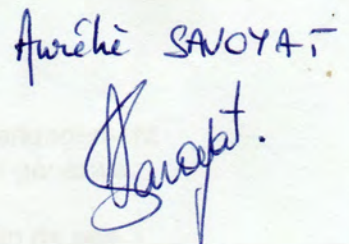 Aurélie SAVOYAT
Savoyat.